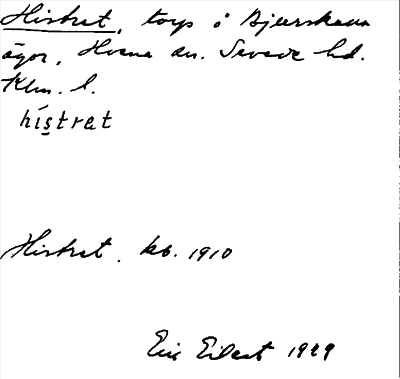 Histret, torp å Bjurskaua
ägor, Hvena sn. Sevede hd.
Klm. l.
hístrat
Histret. kb. 1910
Eric Eilert 1929